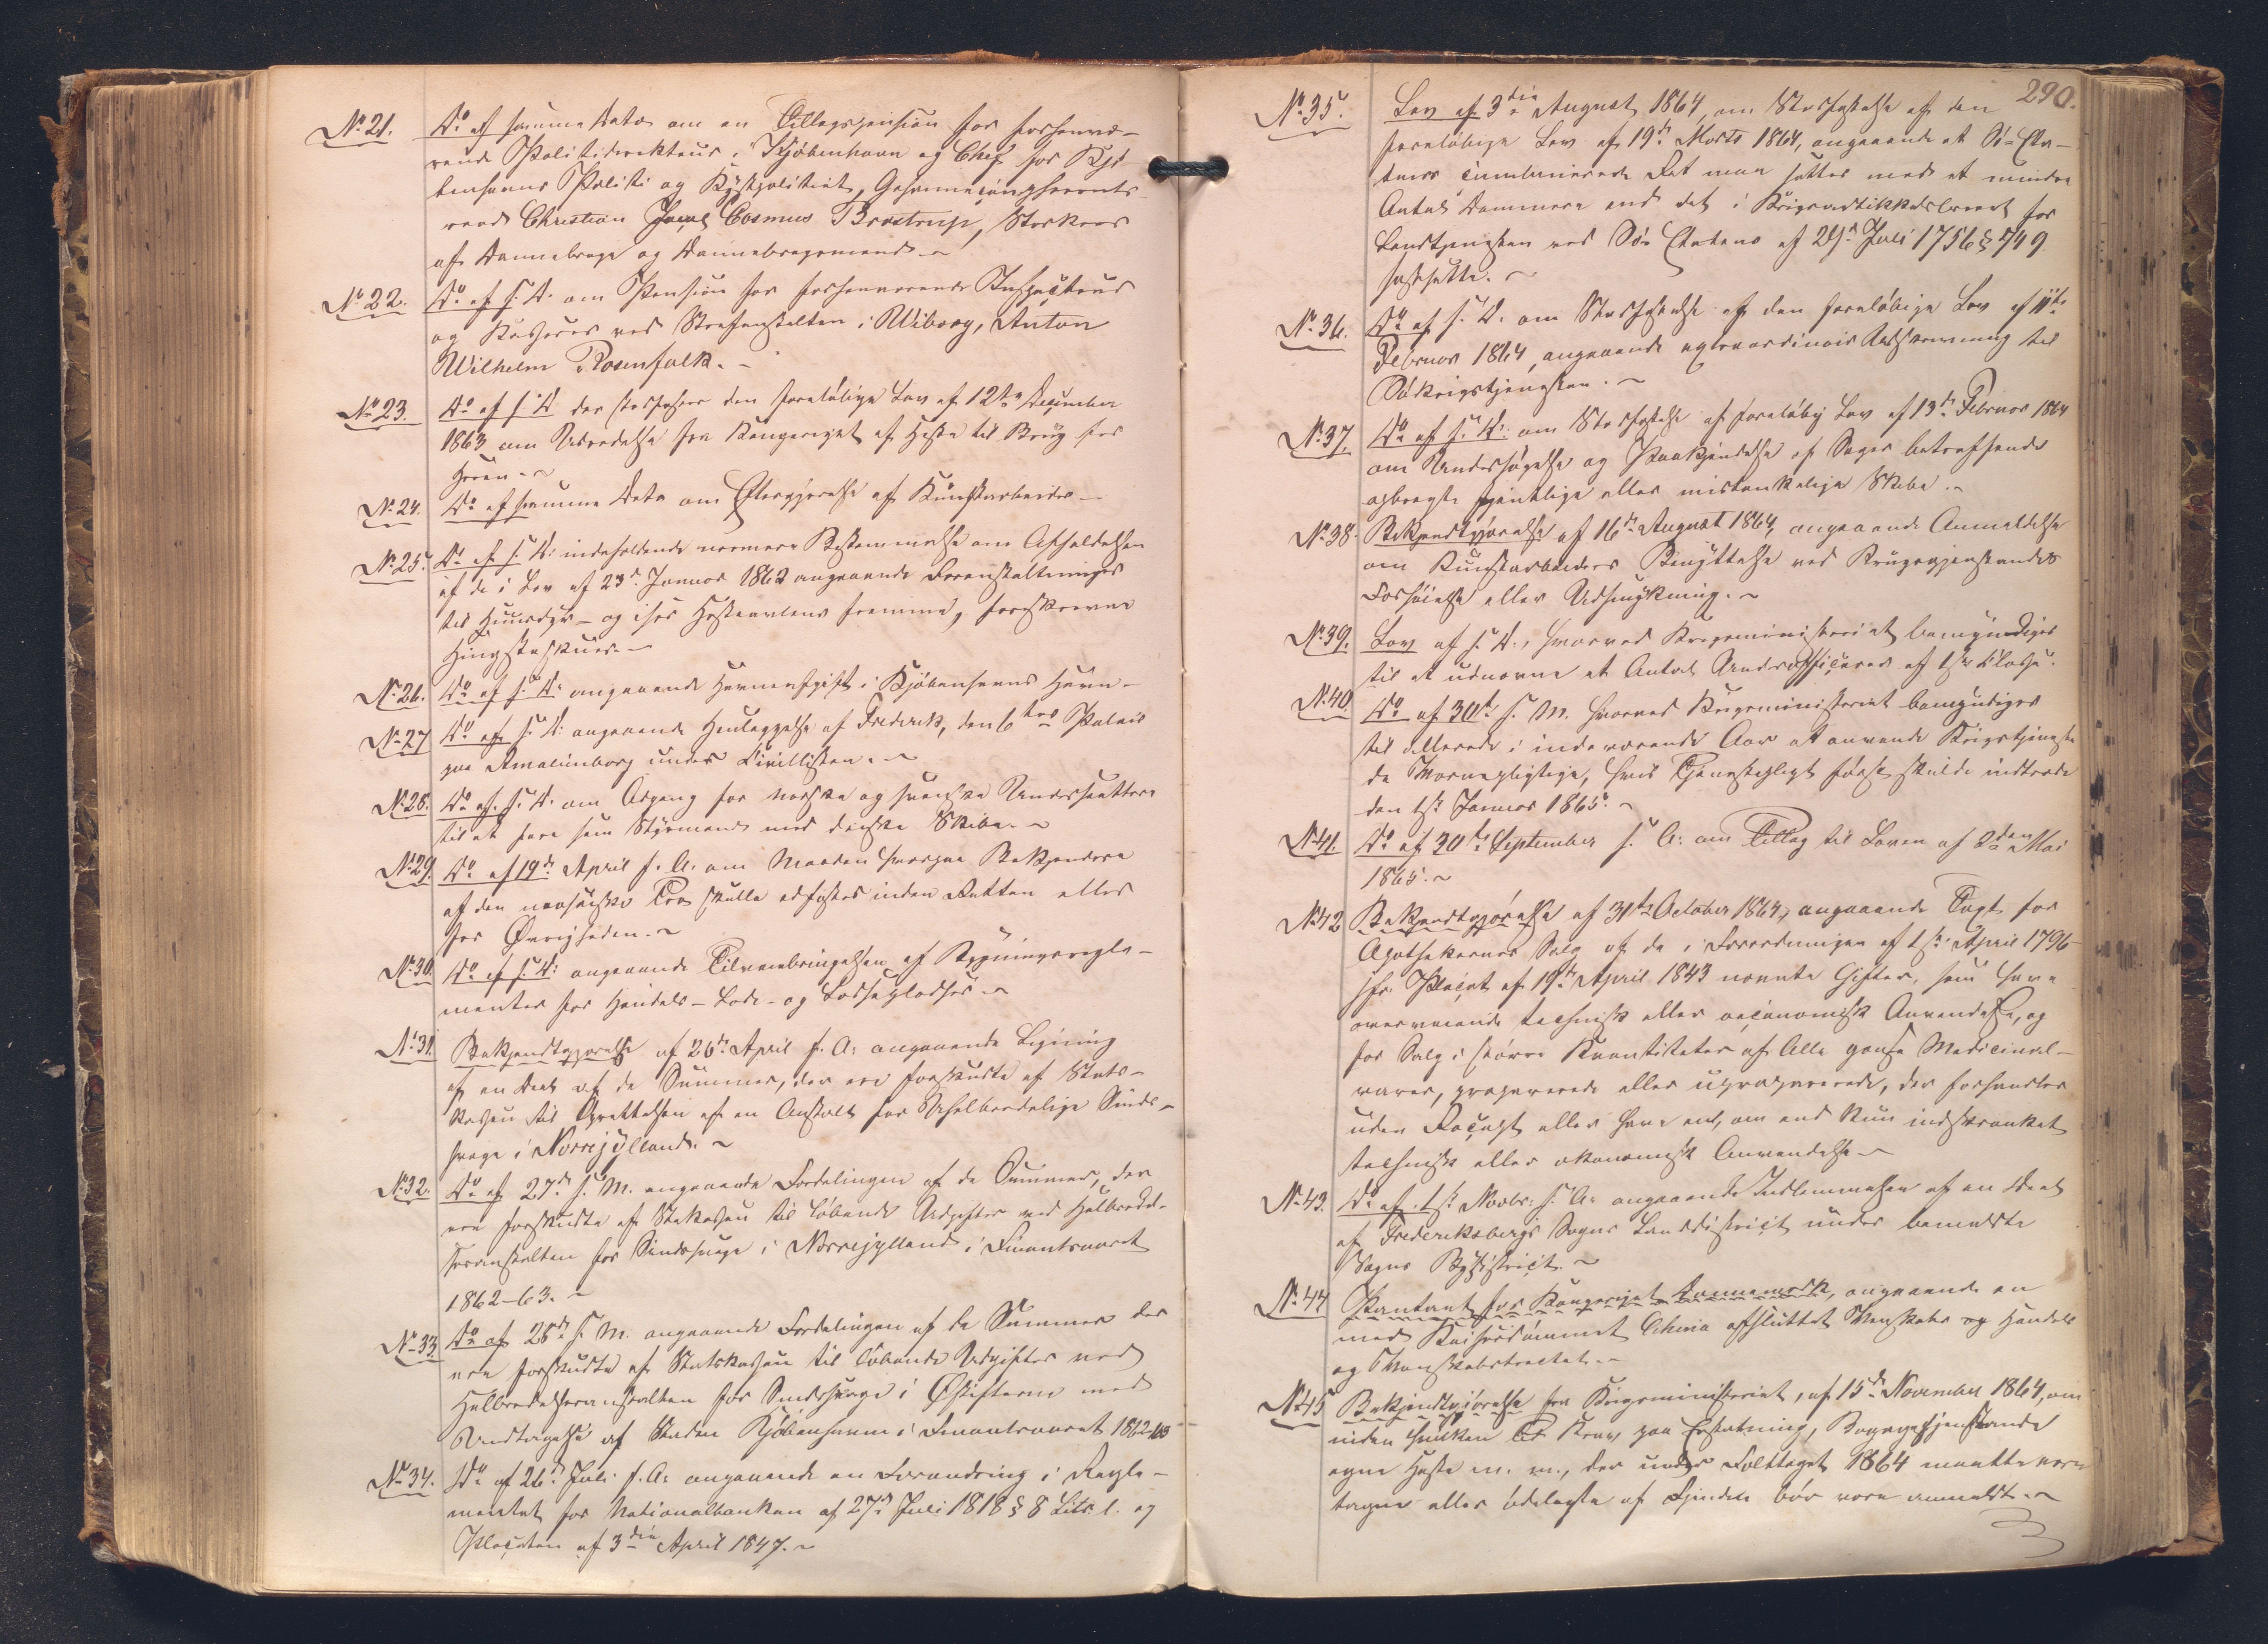 No 21. Do af samme Dato om en Tillægspension for forhenvæ-
rende Politidirekteur i Kjöbenhavn og Chef for Kjö-
benhavns Politi og Kystpolitiet, Geheimeconferents-
raad Christian Jacob Cosmus Bræstrup, Storkors
af Dannebroge og Dannebrogsmand.
No 22. Do af s. D. om Pension for forhenværende Inspecteur
og Kasserer ved Straffeanstalten i Wiborg, Anton
Wilhelm Rosenfalk.
No 23. Do af s. D. der stadfæster den foreløbige Lov af 12te December
1863 om Udredelse fra Kongeriget af Heste til Brug for
Hæren.
No 24. Do af samme Dato om Eftergjørelse af Kunstarbeider
No 25. Do af s. D. indeholdende nærmere Bestemmelse om Afholdelsen
af de i Lov af 23de Januar 1862 angaaende Foranstaltninger
til Huusdyr- og især Hesteavlens Fremme, foreskrevne
Hingsteskuer.
No 26. Do af s. D. angaaende Havneafgift i Kjöbenhavns Havn
No 27 Do af s. D. angaaende Henlæggelse af Frederik den 6tes Palais
paa Amalienborg under Civillisten.
No 28. Do af s. D. om Adgang for norske og svenske Undersaatter
til at fare som Styrmænd med danske Skibe.
No 29. Do af 19de April s. A. om Maaden hvorpaa Bekjendere
af den mosaiske Tro skulle edfæstes inden Retten eller
for Øvrigheden.
No 30. Do af s. D. angaaende Tilveiebringelsen af Bygningsregle-
menter for Handels- Lade- og Lossepladser
No 31. Bekjendtgjørelse af 26de April s. A. angaaende Ligning
af en Deel af de Summer, der ere forskudte af Stats-
kassen til Oprettelsen af en Anstalt for Uhelbredelige Sinds-
svage i Nørrejylland.
No 32. Do af 27de s. M. angaaende Fordelingen af de Summer, der
ere forskudte af Statskassen til løbende Udgifter ved Helbredel-
sesanstalten for Sindssvage i Nørrejylland i Finantsaaret
1862-63.
No 33. Do af 28de s. M. angaaende Fordelingen af de Summer der
ere forskudte af Statskassen til løbende Udgifter ved
Helbredelsesanstalten for Sindssvage i Østifterne med
Undtagelse af Staden Kjöbenhavn i Finantsaaret 1862-63
No 34. Do af 26de Juli s. A. angaaende en Forandring i Regle-
mentet for Nationalbanken af 27de Juli 1818 § 8 Litr. l. og
Placaten af 3die April 1847.
290.
No 35. Lov af 3die August 1864, om Stadfæstelse af den
foreløbige Lov af 19de Marts 1864, angaaende at Sø-Eta-
tens combinerede Ret maa sættes med et mindre
Antal Dommere end det i Krigsartikkelsbrevet for
Landtjenesten ved Sø-Etaten af 29de Juli 1756 § 749
fastsatte.
No 36. Do af s. D. om Stadfæstelse af den foreløbige Lov af 11te
Februar 1864, angaaende extraordinair Udskrivning til
Søkrigstjenesten.
No 37. Do af s. D. om Stadfæstelse af foreløbig Lov af 13de Februar 1864
om Undersøgelse og Paakjendelse af Sager betræffende
opbragte fjendtlige eller mistænkelige Skibe.
No 38. Bekjendtgjørelse af 16de August 1864, angaaende Anmeldelse
om Kunstarbeiders Benyttelse ved Brugsgjenstandes
Forsiring eller Udsmykning.
No 39. Lov af s. D., hvorved Krigsministeriet bemyndiges
til at udnævne et Antal Underofficerer af 1ste Classe.
No 40. Do af 30te s. M. hvorved Krigsministeriet bemyndiges
til allerede i indeværende Aar at anvende Krigstjeneste
de Værnepligtige, hvis Tjenestepligt først skulde indtræde
den 1ste Januar 1865.
No 41. Do af 20de September s. A. om Tillæg til Loven af 2den Mai
1865.
No 42 Bekjendtgjørelse af 31te October 1864, angaaende Taxt for
Apothekernes Salg af de i Forordningen af 1ste April 1796
jfr Placat af 19de April 1843 nævnte Gifter, som have
overveiende technisk eller oeconomisk Anvendelse, og
for Salg i større Kvantiteter af Alle gifte Medicinal-
varer, præparerede eller upræparerede, der forhandles
uden Recept eller have en, om end kun indskrænket
technisk eller økonomisk Anvendelse
No 43. Do af 1ste Novbr. s. A. angaaende Indlemmelsen af en Deel
af Frederiksbergs Sogns Landdistrict under bemeldte
Sogns Bydistrict.
No 44 Patent for Kongeriget Danmark, angaaende en
med Keiserdømmet China afsluttet Venskabs og Handels
og Venskabstractat.
No 45 Bekjendtgjørelse fra Krigsministeriet, af 15de November 1864, om
inden hvilken Tid Krav paa Erstatning, Bagagegjenstande
egne Heste m. m., der under Felttoget 1864 maatte være
tagne eller ødelagte af Fjenden bør være anmeldt.